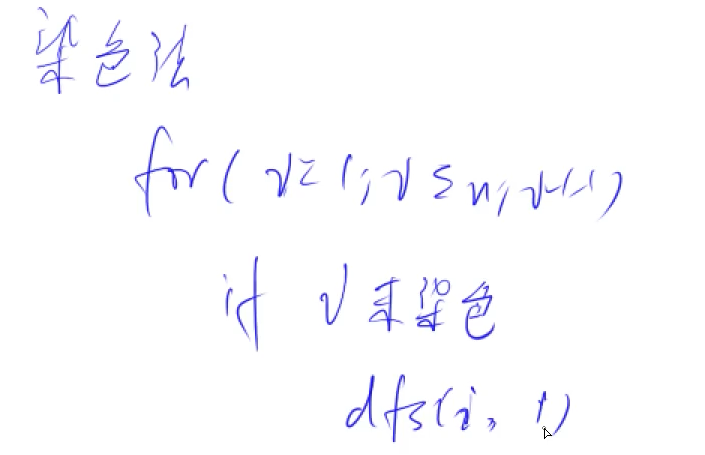 染色法
for( i=1; i≤n; i++)
if i未染色
dfs(i, 1)